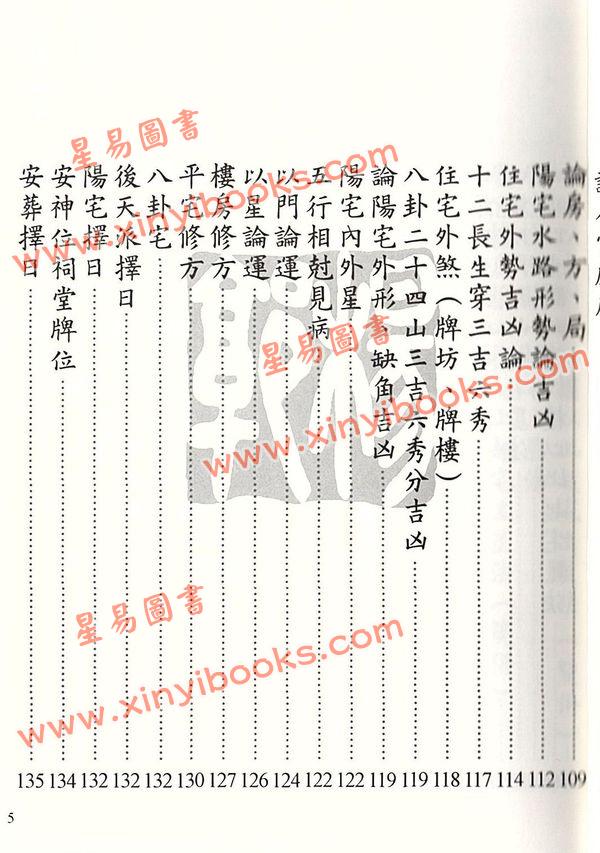 論房、方、局 109
陽宅水路形勢論吉凶 112
住宅外勢吉凶論 114
十二長生穿三吉六秀 117
住宅外煞（牌坊、牌樓） 118
八卦二十四山三吉六秀分吉凶 119
論陽宅外形、缺角吉凶 119
陽宅內外星 122
五行相尅見病 122
以門論運 124
以星論運 126
樓房修方 127
平宅修方 130
八卦宅 132
後天派擇日 132
陽宅擇日 132
安神位祠堂牌位 134
安葬擇日 135
5
星易圖書
www.xinyibooks.com
星易圖書
www.xinyibooks.com
星易圖書
www.xinyibooks.com